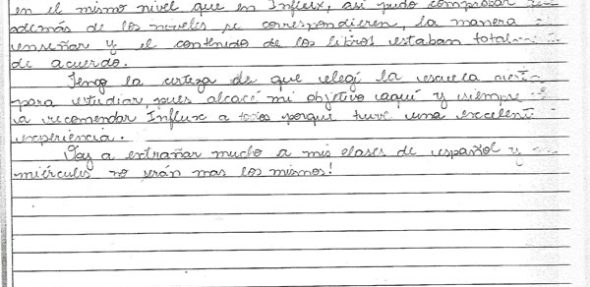 en el mismo nivel que en Influx, asi pude comprobar
además de los niveles se correspondieren, la manera
enseñar y el contenido de los libros estaban total
de acuerdo.
Tengo la certeza de que elegí la escuela
para estudiar, pues alcacé mi objetivo aquí y siempre
a recomendar Influx a todos porque tuve una excelent
experiencia.
Voy a extrañar mucho a mis clases de español y
miércules no serán mas los mismos!